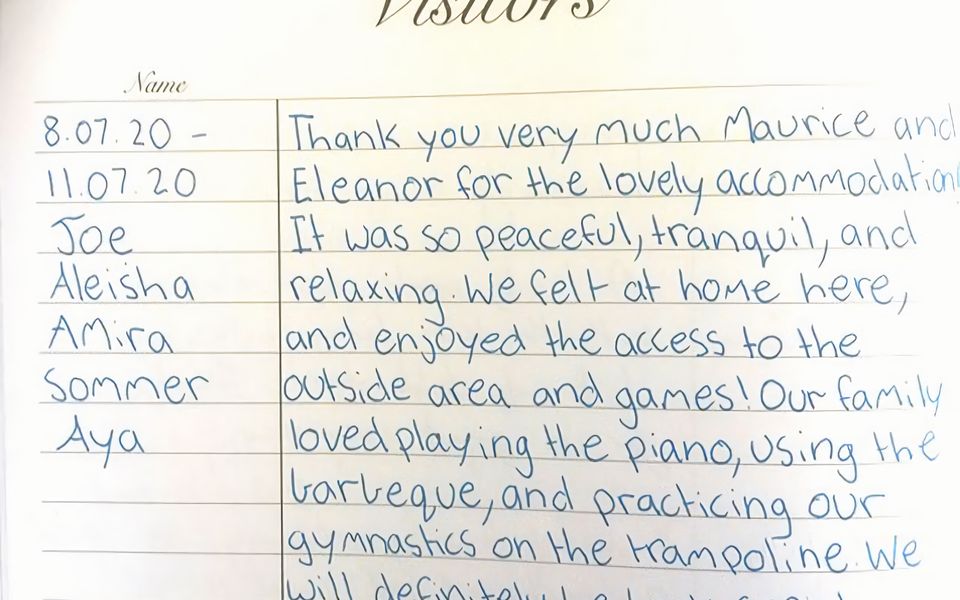 Visitors
Name
8.07.20 -
11.07.20
Joe
Aleisha
Amira
Sommer
Aya
Thank you very much Maurice and
Eleanor for the lovely accommodation
It was so peaceful, tranquil, and
relaxing. We felt at home here,
and enjoyed the access to the
outside area and games! Our family
loved playing the piano, using the
barbeque, and practicing our
gymnastics on the trampoline. We
will definitely